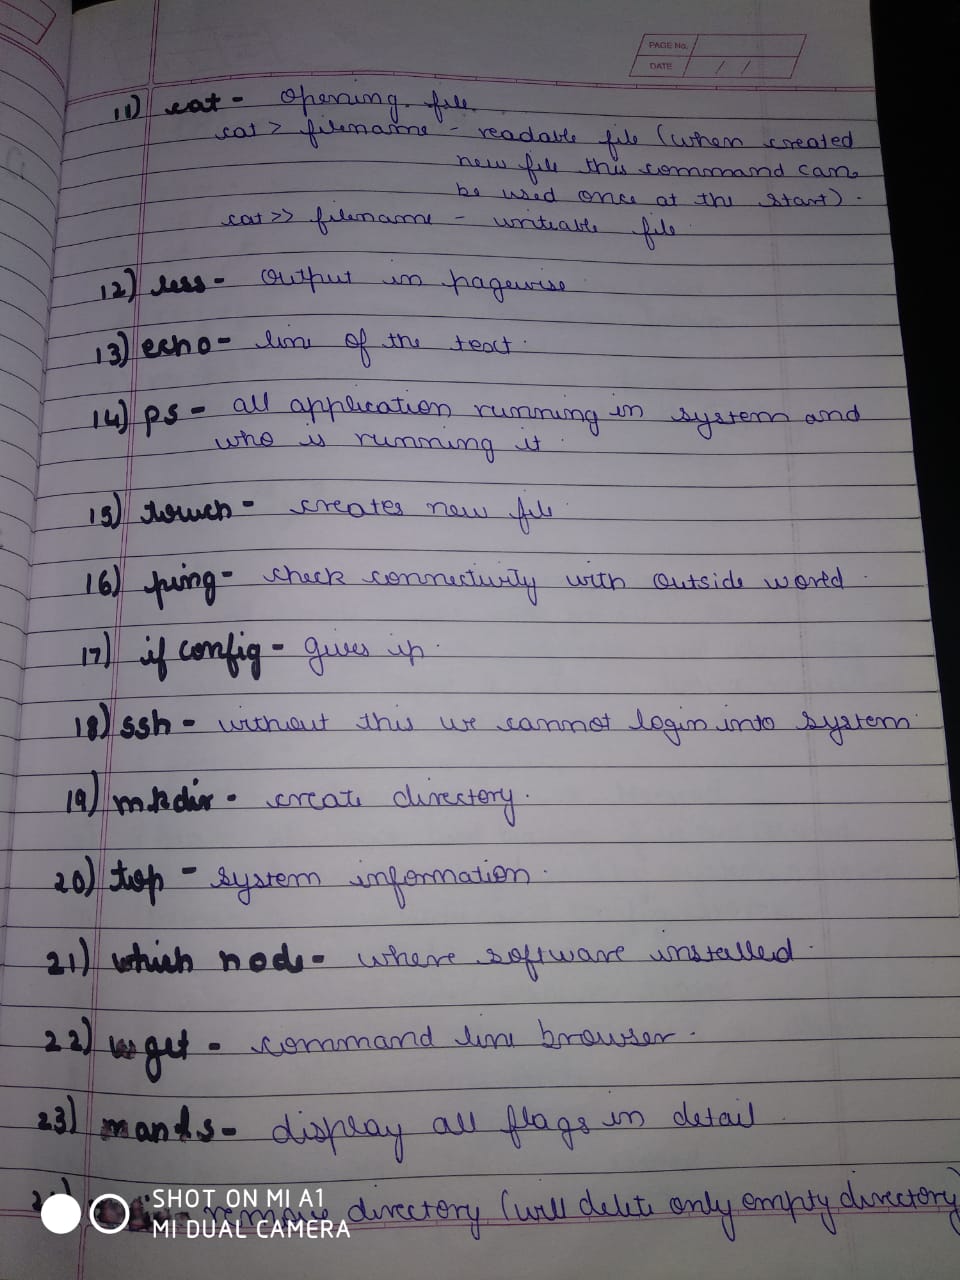 PAGE No.
DATE / /
11) cat - opening file.
cat > filename - readable file (when created
new file this command can
be used once at the start).
cat >> filename - writeable file.
12) less - output in pagewise.
13) echo - line of the text.
14) ps - all application running in system and
who is running it.
15) touch - creates new file.
16) ping - check connectivity with outside world.
17) if config - gives ip.
18) ssh - without this we cannot login into system.
19) mkdir - create directory.
20) top - system information.
21) which node - where software installed.
22) wget - command line browser.
23) man ls - display all flags in detail
remove directory (will delete only empty directory)
SHOT ON MI A1
MI DUAL CAMERA